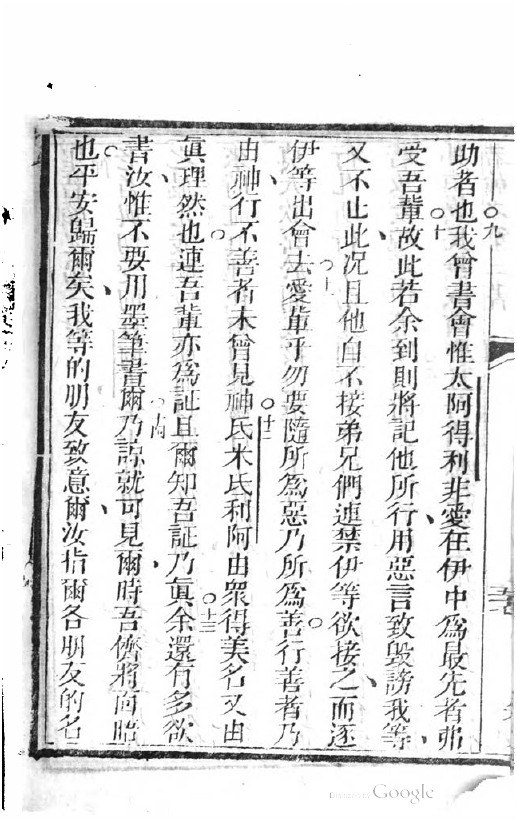 助者也○九我曾書會惟太阿得利非愛在伊中為最先者弗
受吾輩○十故此若余到則將記他所行用惡言致毀謗我等
又不止此况且他自不接弟兄們連禁伊等欲接之而逐
伊等出會去○十一愛輩乎勿要隨所為惡乃所為善○行善者乃
由神行不善者未曾見神○十二氐米氐利阿由衆得美名又由
真理然也○連吾輩亦為証且爾知吾証乃真○十三余還有多欲
書汝惟不要用墨筆書爾○十四乃諒就可見爾時吾儕將面晤
也○平安歸爾矣我等的朋友致意爾汝指爾各朋友的名
Google